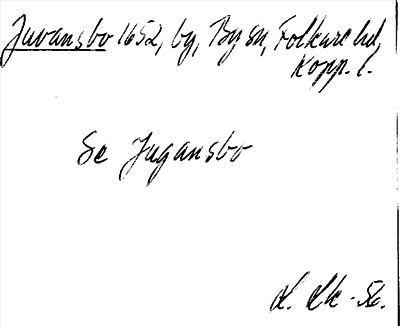 Juvansbo 1652, by, By sn, Folkare hd,
Kopp. l.
Se Jugansbo
L. Lk - 56.